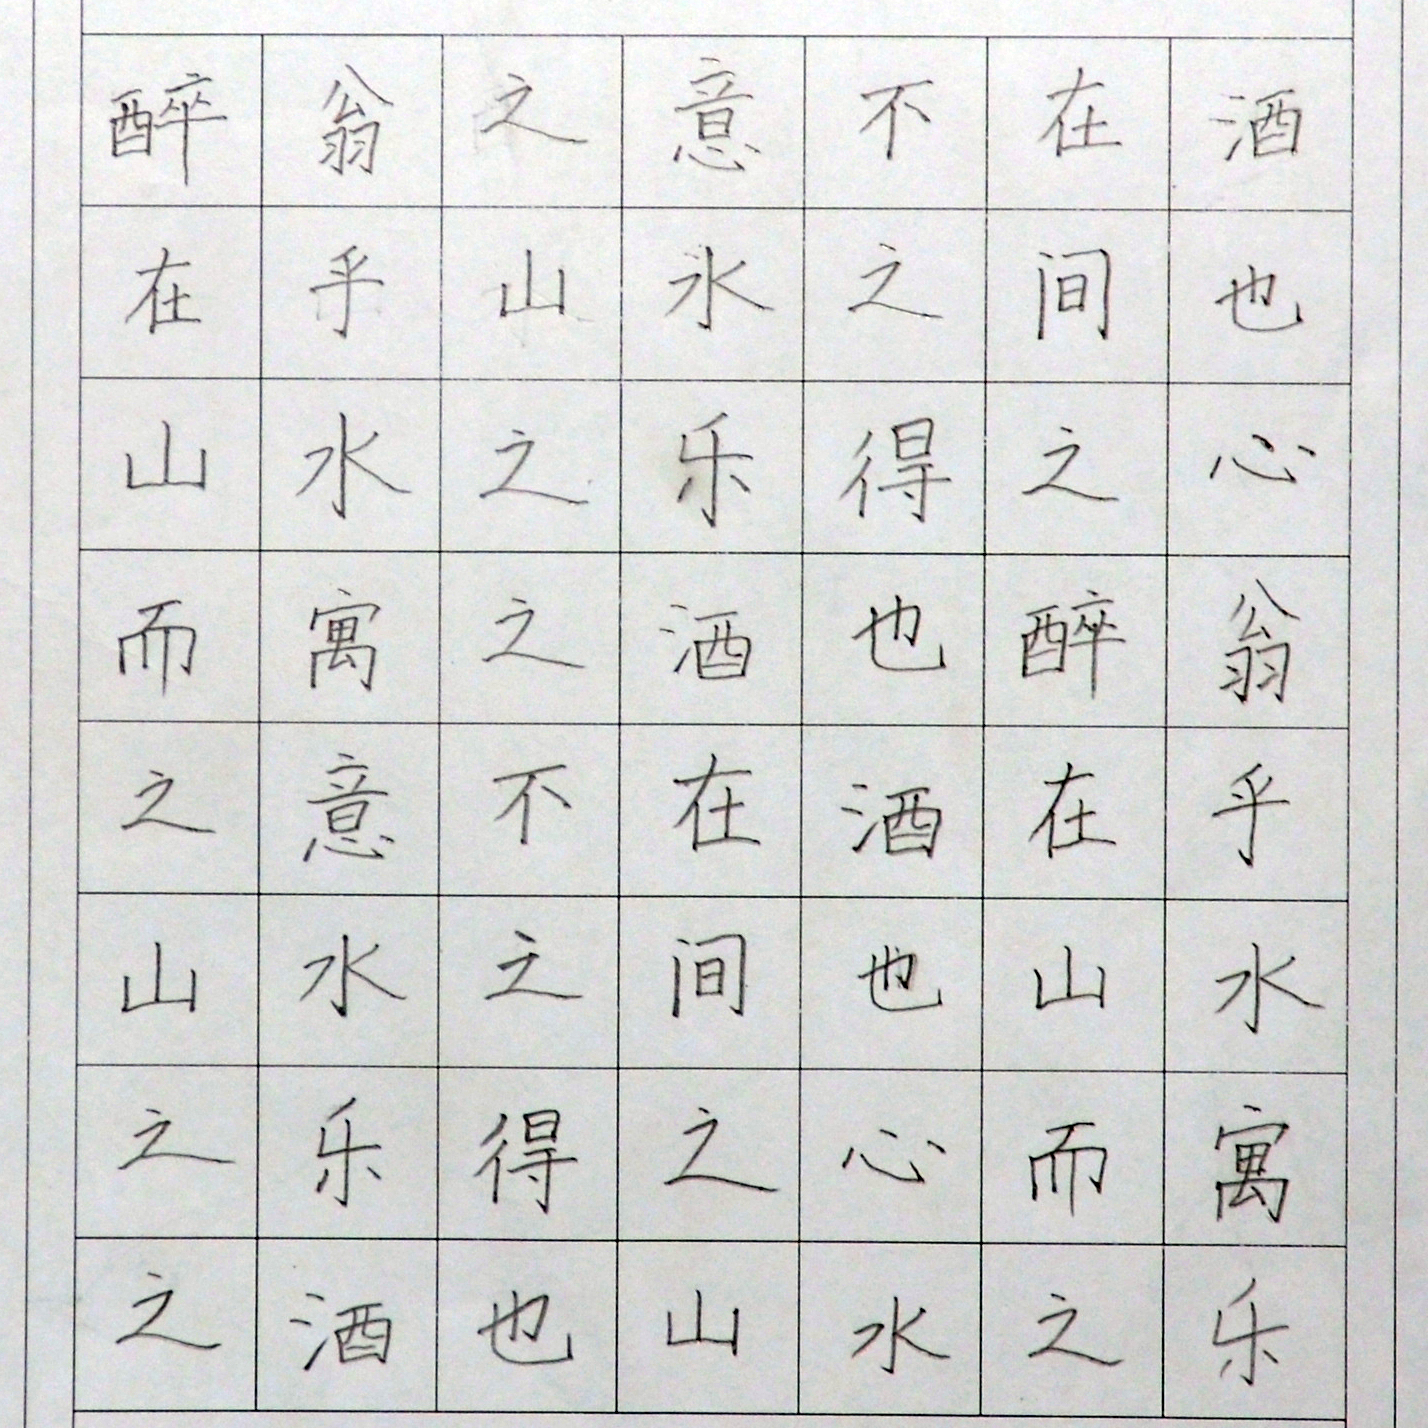 醉翁之意不在酒
在乎山水之间也
山水之乐得之心
而寓之酒也醉翁
之意不在酒在乎
山水之间也山水
之乐得之心而寓
之酒也山水之乐